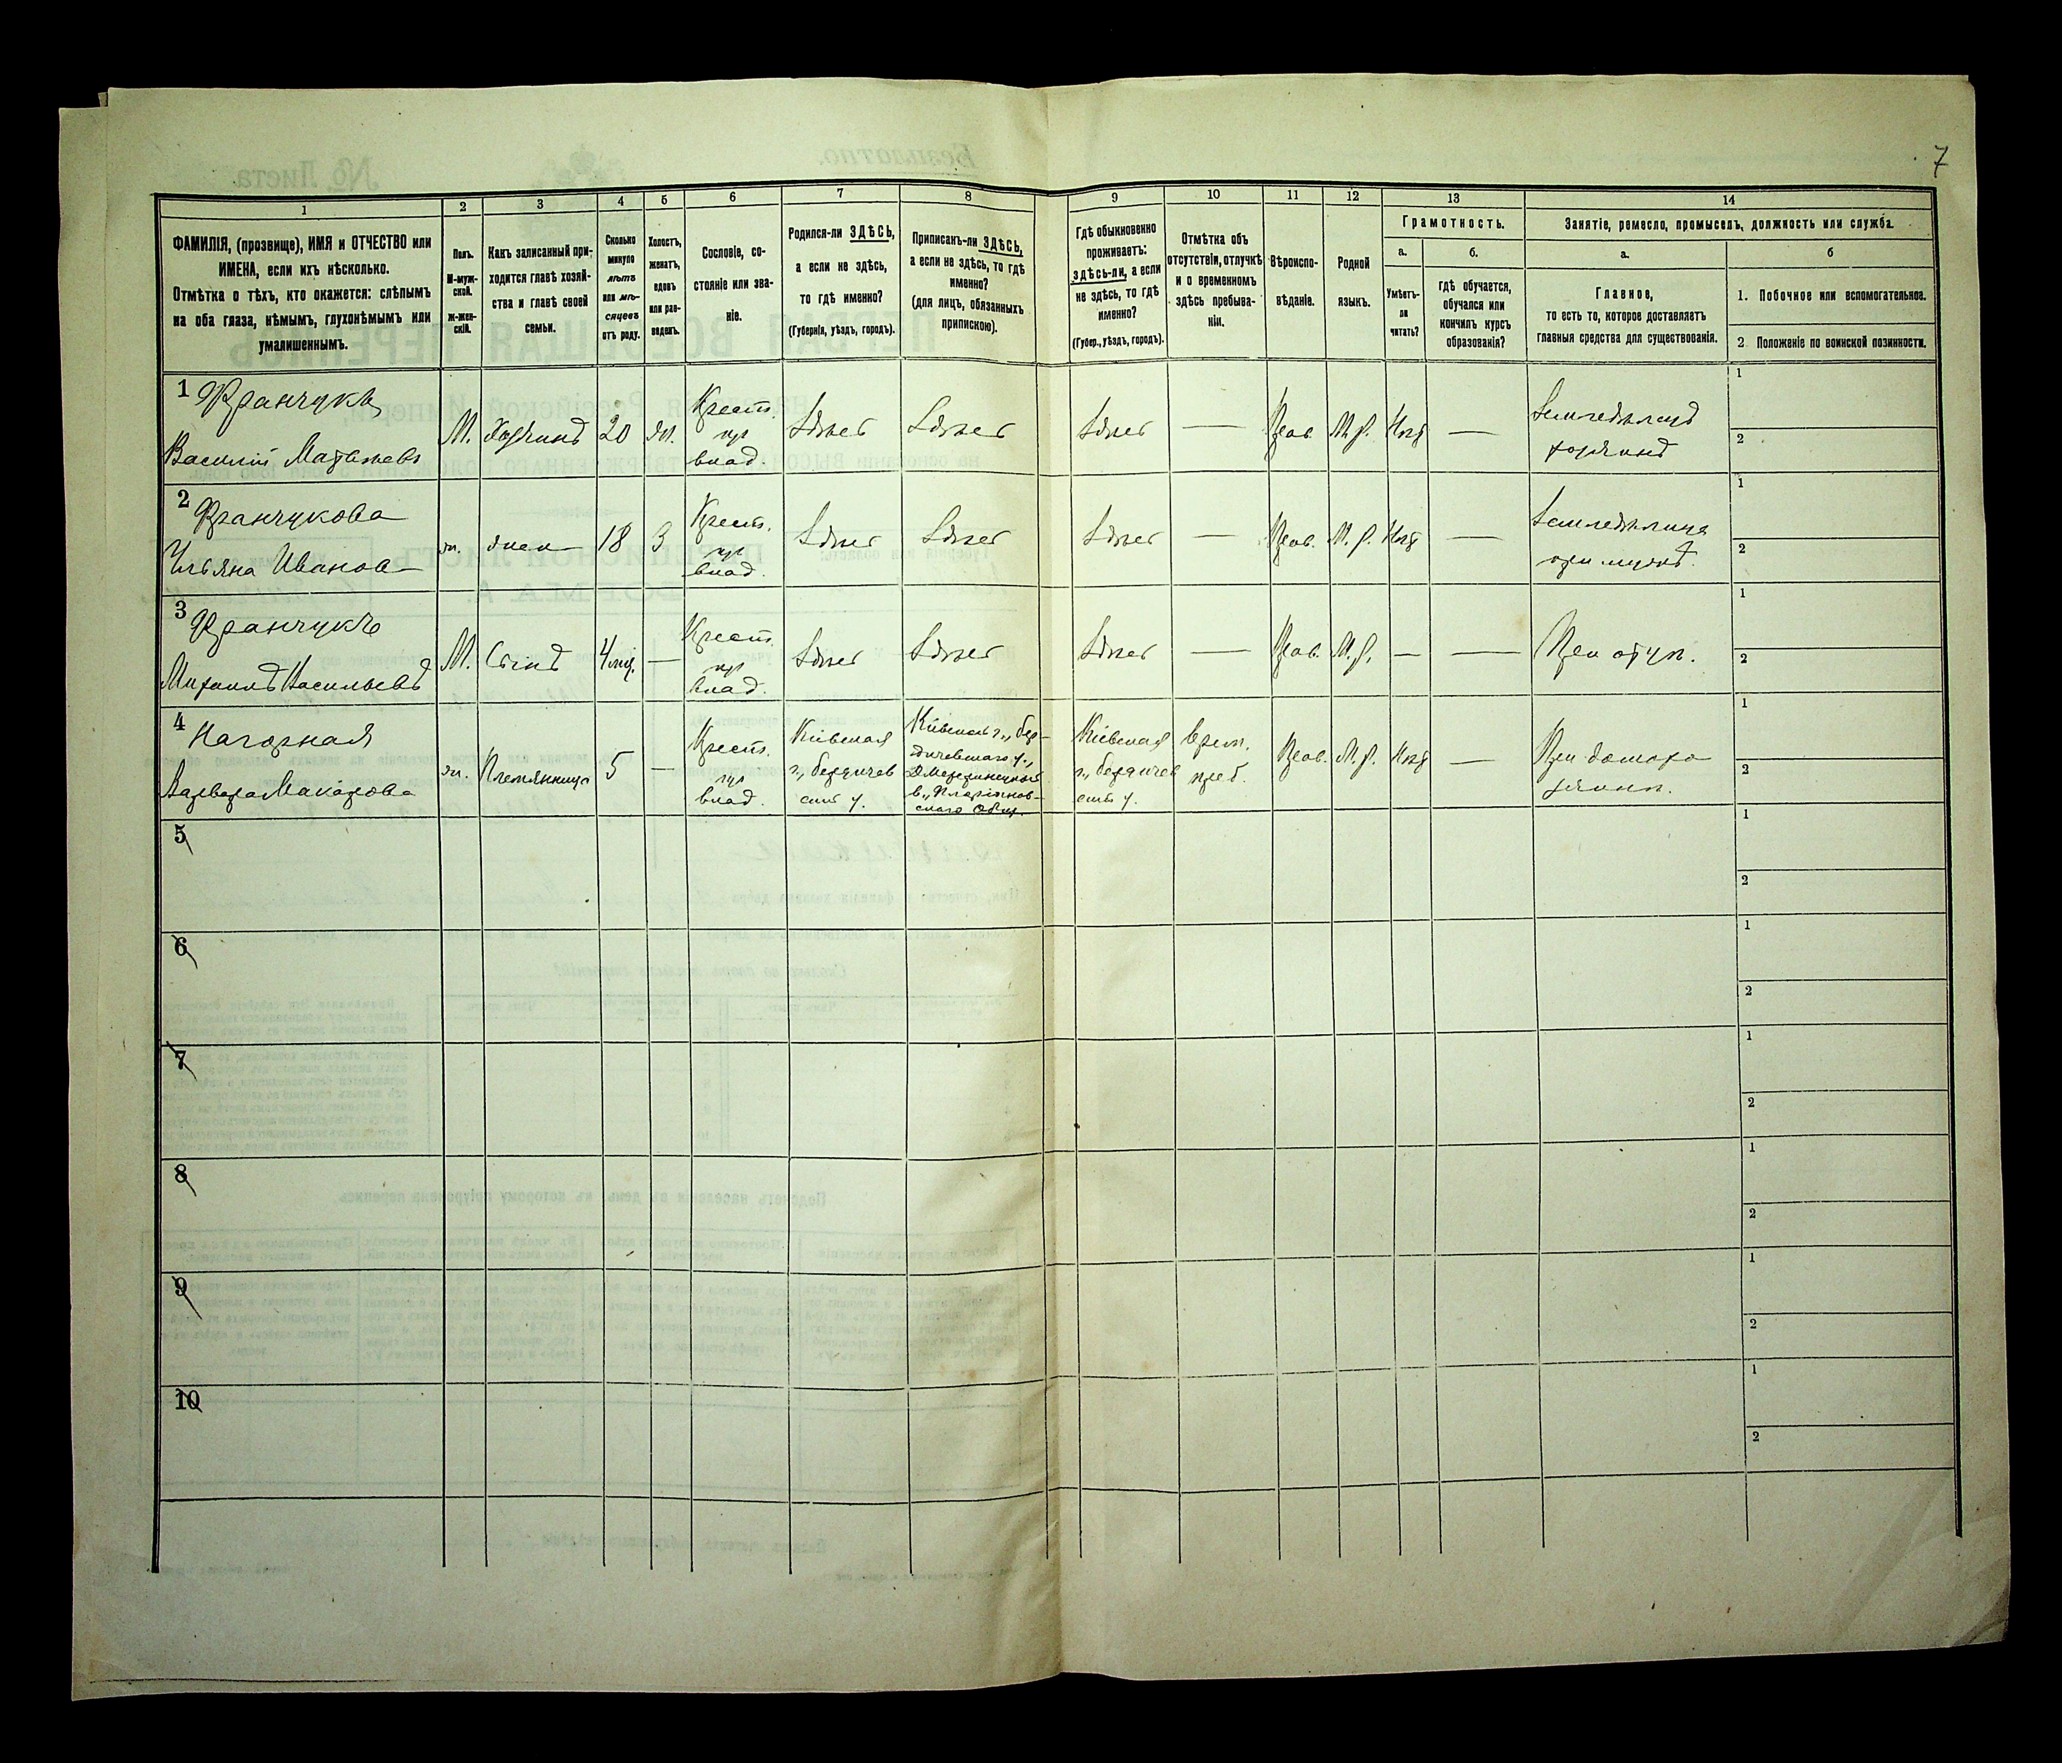 7
1 2 3 4 5 6 7 8 9 10 11 12 13 14
ФАМИЛІЯ, (прозвище), ИМЯ и ОТЧЕСТВО или
ИМЕНА, если ихъ нѣсколько.
Отмѣтка о тѣхъ, кто окажется: слѣпымъ
на оба глаза, нѣмымъ, глухонѣмымъ или
умалишеннымъ.
Полъ.
М-муж-
ской.
ж-жен-
скій.
Какъ записанный при-
ходится главѣ хозяй-
ства и главѣ своей
семьи.
Сколько
минуло
лѣтъ
или мѣ-
сяцевъ
отъ роду.
Холостъ,
женатъ,
вдовъ
или раз-
веденъ.
Сословіе, со-
стояніе или зва-
ніе.
Родился-ли ЗДѢСЬ,
а если не здѣсь,
то гдѣ именно?
(Губернія, уѣздъ, городъ).
Приписанъ-ли ЗДѢСЬ,
а если не здѣсь, то гдѣ
именно?
(для лицъ, обязанныхъ
припискою).
Гдѣ обыкновенно
проживаетъ:
здѣсь-ли, а если
не здѣсь, то гдѣ
именно?
(Губер., уѣздъ, городъ).
Отмѣтка объ
отсутствіи, отлучкѣ
и о временномъ
здѣсь пребыва-
ніи.
Вѣроиспо-
вѣданіе.
Родной
языкъ.
Грамотность.
а.
Умѣетъ-
ли
читать?
б.
гдѣ обучается,
обучался или
кончилъ курсъ
образованія?
Занятіе, ремесло, промыселъ, должность или служба.
а.
Главное,
то есть то, которое доставляетъ
главныя средства для существованія.
б
1. Побочное или вспомогательное.
2 Положеніе по воинской повинности.
1 Франчукъ
Василій Матвѣевъ
М.
Хозяинъ
20
Жн.
Крест.
влад.
Здѣсь
Здѣсь
Здѣсь
—
Прав.
М.р.
Нѣтъ
—
Земледѣлецъ
хозяинъ
1
2
2 Франчукова
Ульяна Иванов—
ж.
жена
18
З
Крест.
влад.
Здѣсь
Здѣсь
Здѣсь
—
Прав.
М.р.
Нѣтъ
—
Земледѣлица
при мужѣ.
1
2
3 Франчукъ
Михаилъ Васильевъ
М.
Сынъ
4 мѣ.
—
Крест.
влад.
Здѣсь
Здѣсь
Здѣсь
—
Прав.
М.р.
—
—
При отцѣ.
1
2
4 Нагорная
Варвара Макарова
ж.
Племянница
5
—
Крест.
влад.
Кіевская
г., бердичев
скій у.
Кіевской г., бер-
дичевскаго у.,
в.,
скаго Общ.
Кіевская
г., бердичев
скій у.
врем.
преб.
Прав.
М.р.
Нѣтъ
—
При
1
2
5
1
2
6
1
2
7
1
2
8
1
2
9
1
2
10
1
2